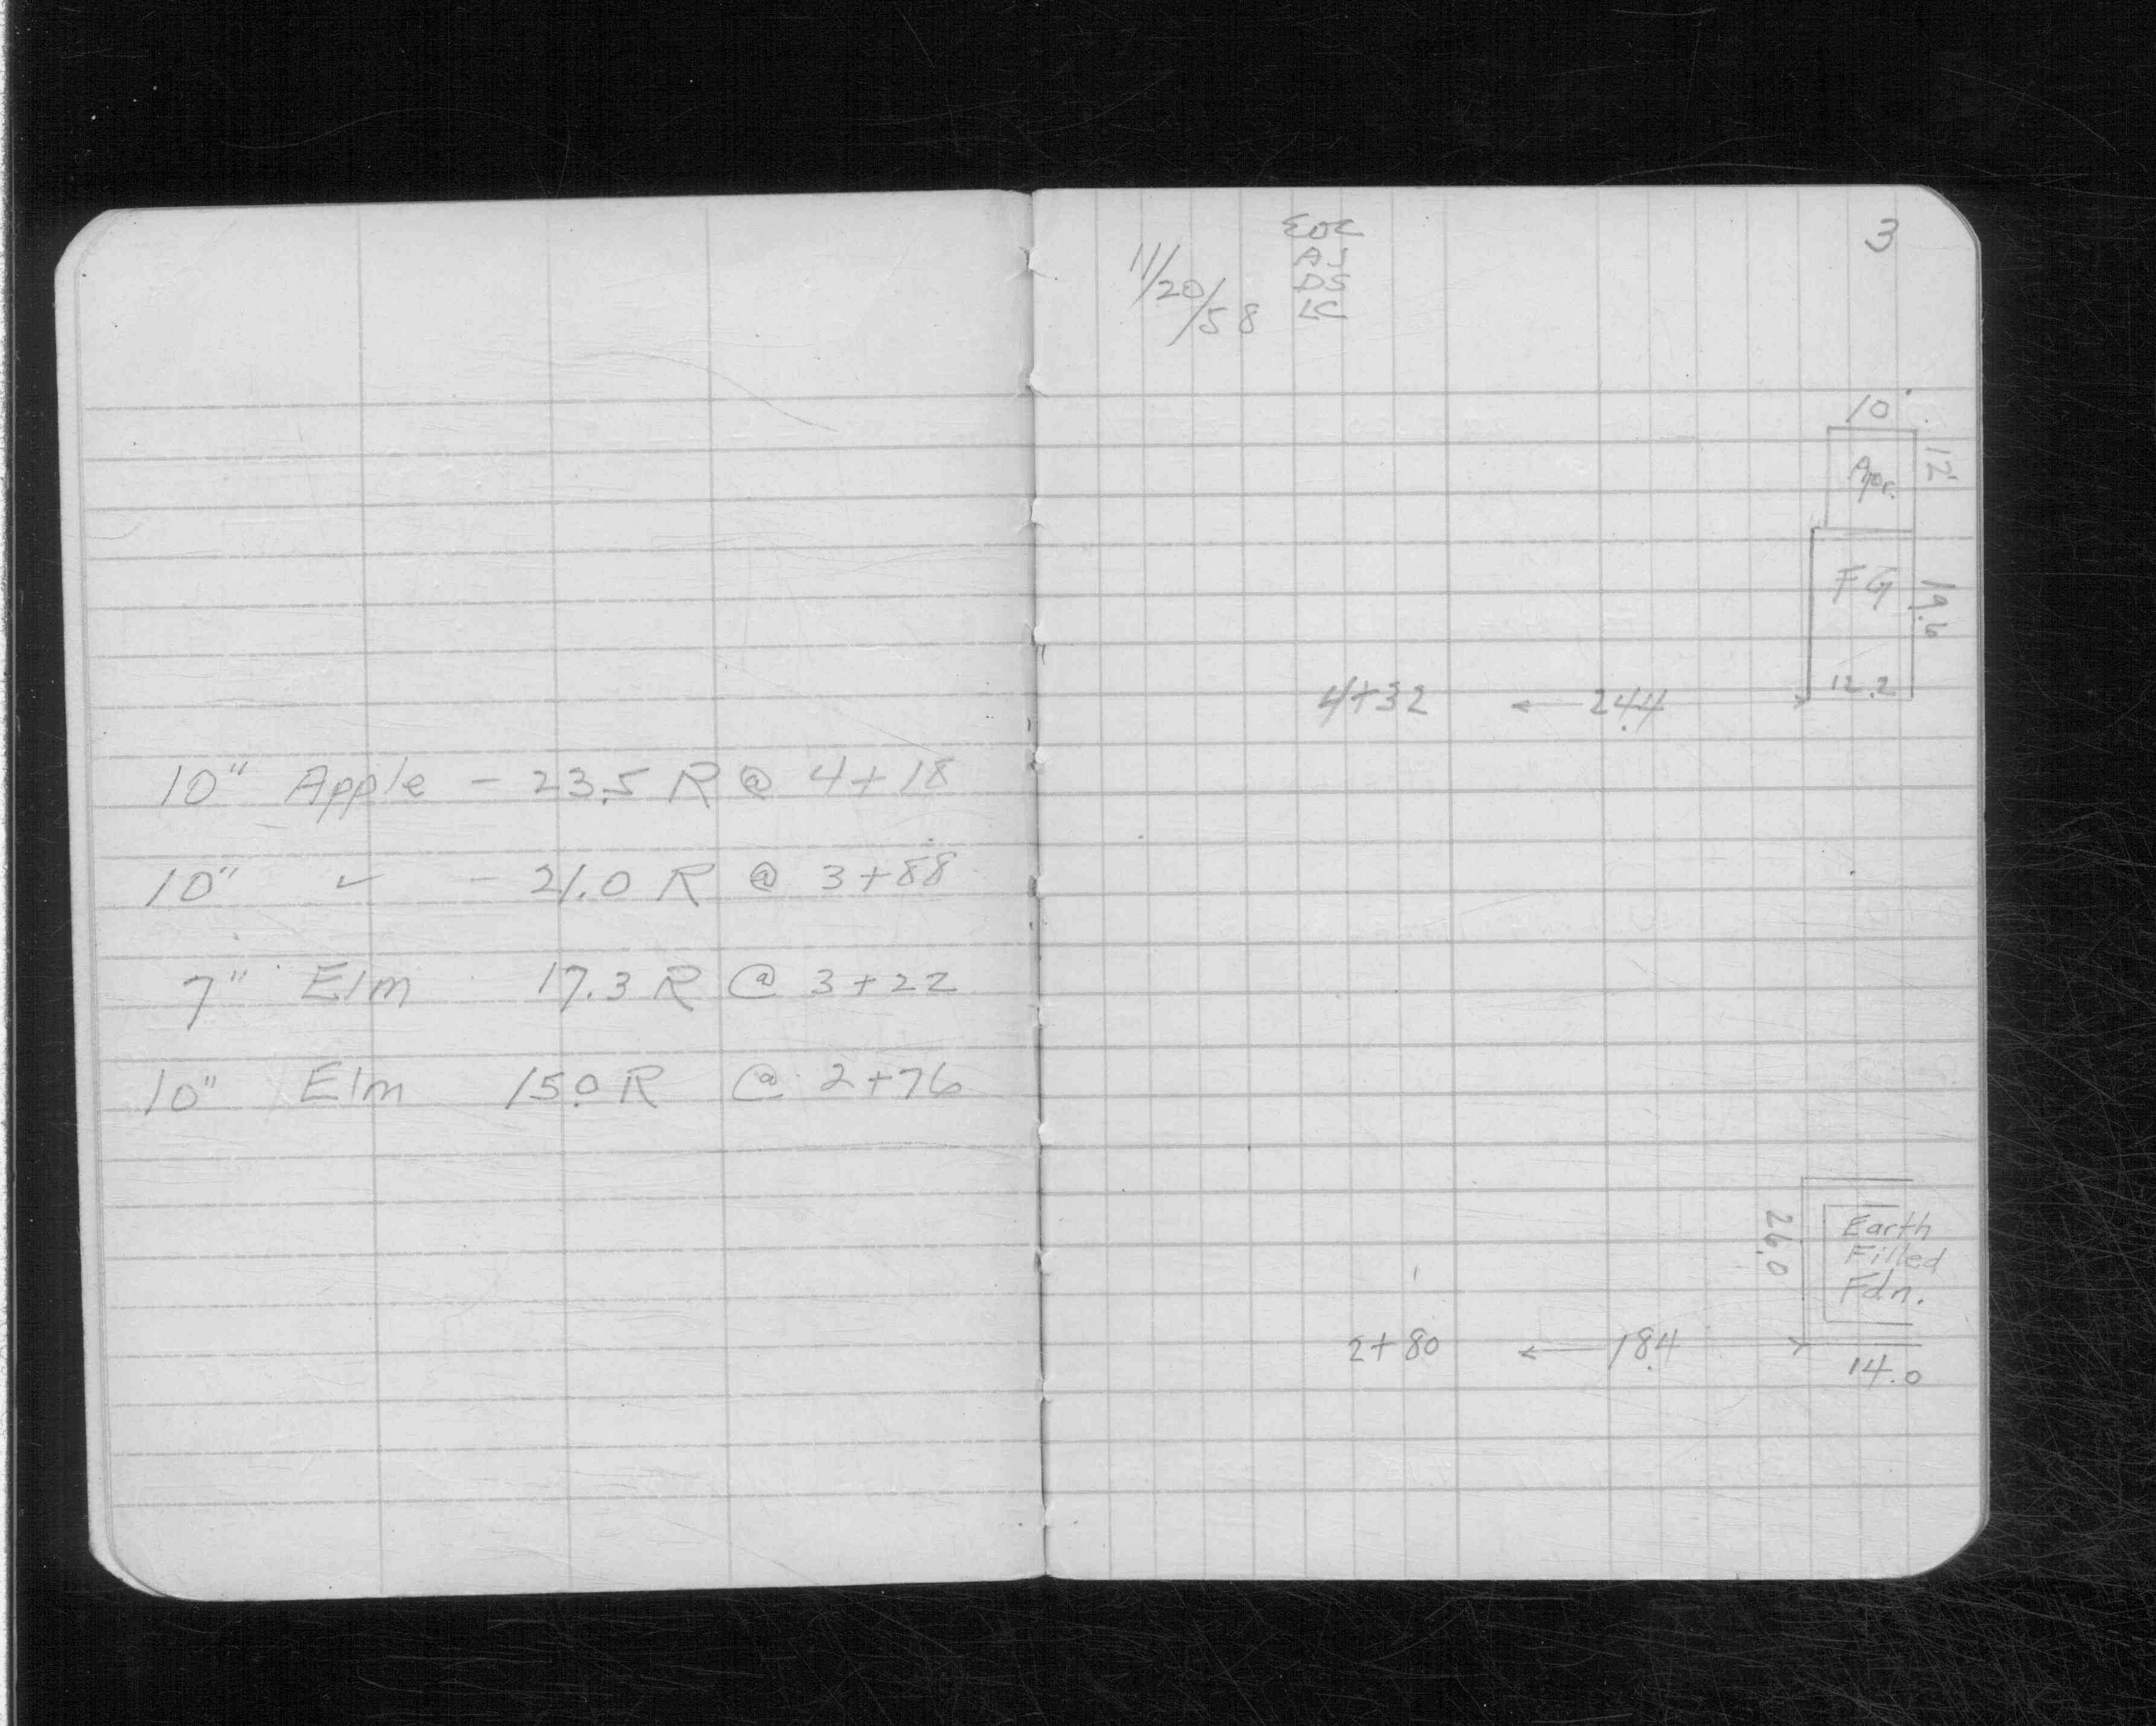 10" Apple - 23.5 R @ 4+18
10" ✓ - 21.0 R @ 3+88
7" Elm 17.3 R @ 3+22
10" Elm 15.0 R @ 2+76
3
11/20/58
EOC
AJ
DS
LC
10'
12'
Apr.
FG
19.6
12.2
4+32 24.4
26.0
Earth
Filled
Fdn.
2+80 18.4
14.0